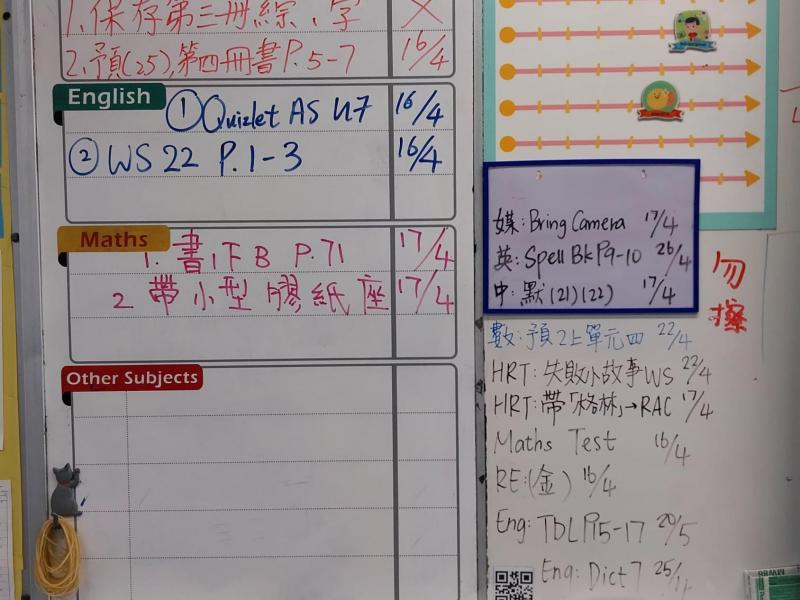 1.保存第三冊綜、字 X
2.預(25),第四冊書P.5-7 16/4
English
① Quizlet AS U7 16/4
② WS 22 P.1-3 16/4
Maths
1. 書1下B P.71 17/4
2 帶小型膠紙座 17/4
Other Subjects
媒: Bring Camera 17/4
英: Spell Bk P9-10 26/4
中: 默(21)(22) 17/4
勿擦
數: 預2上單元四 22/4
HRT: 失敗小故事WS 22/4
HRT: 帶「格林」→RAC 17/4
Maths Test 16/4
RE:(金) 16/4
Eng: TBLP15-17 20/5
Eng: Dict 7